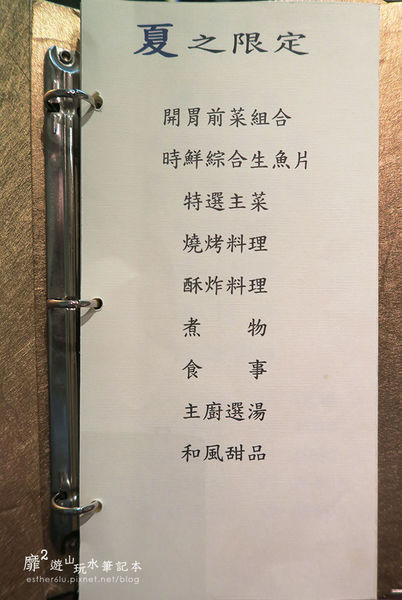 夏之限定
開胃前菜組合
時鮮綜合生魚片
特選主菜
燒烤料理
酥炸料理
煮 物
食 事
主廚選湯
和風甜品
靡2遊山玩水筆記本
esther6lu.pixnet.net/blog